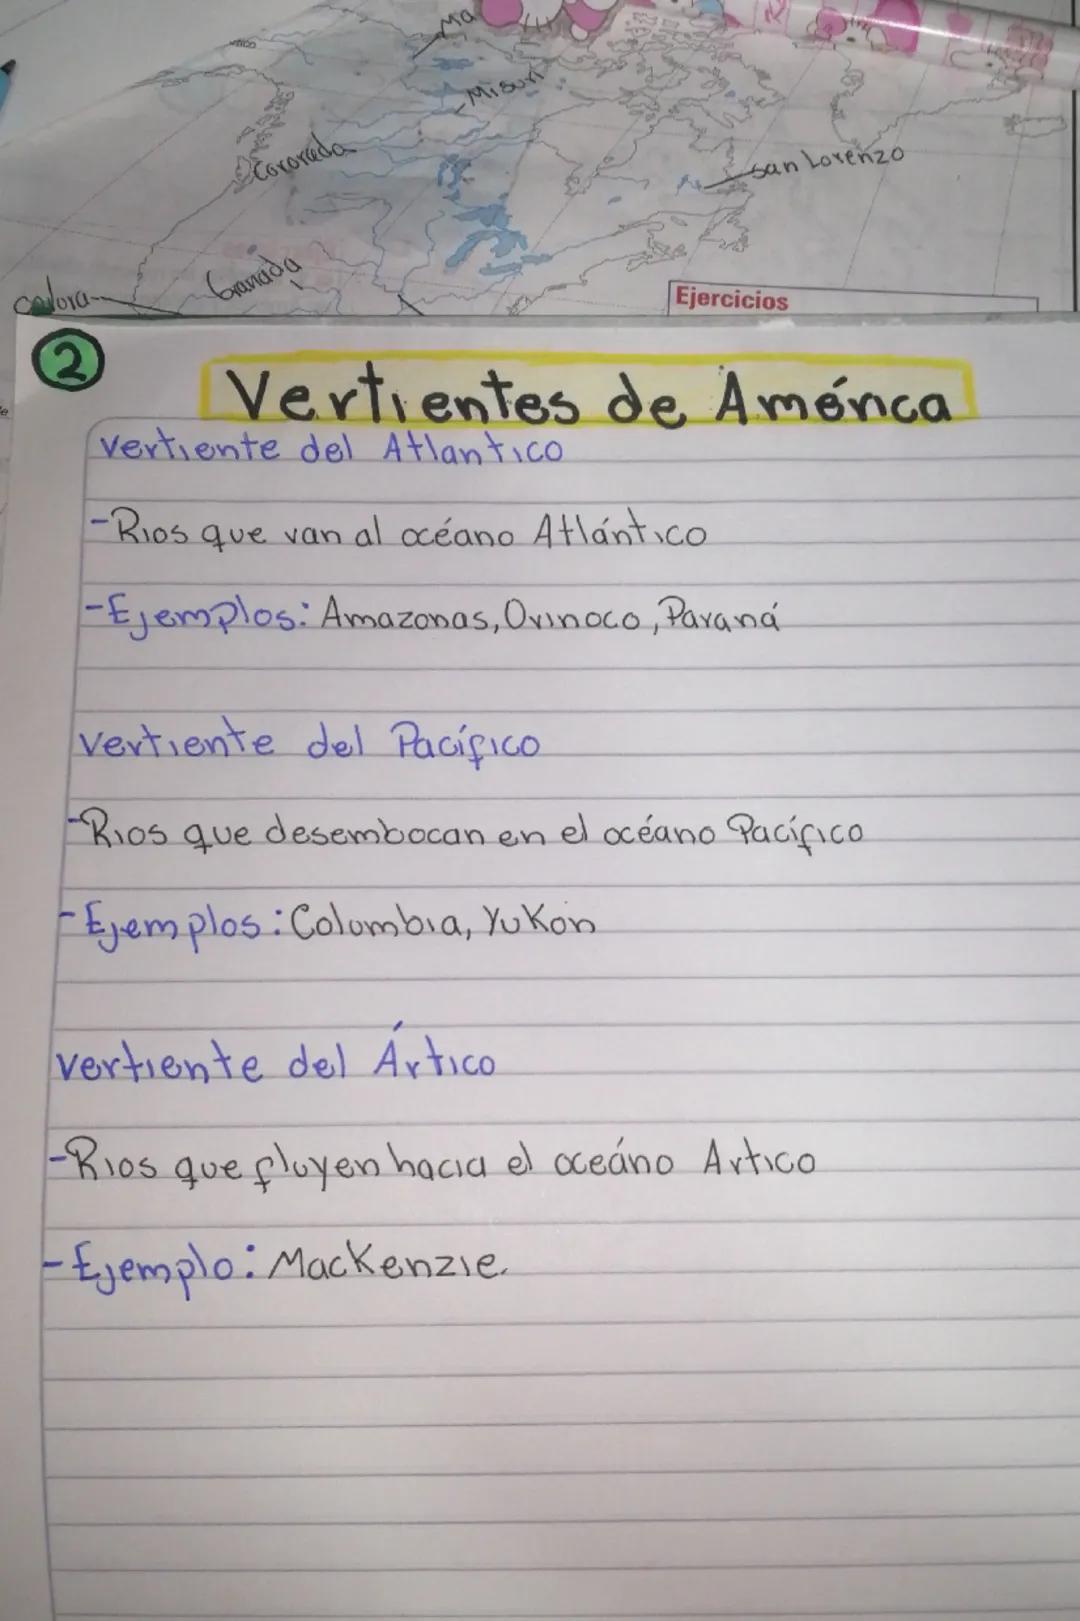 Ma
Misuri
Cororado
san Lorenzo
Granada
Ejercicios
2
Vertientes de América
vertiente del Atlantico
-Rios que van al océano Atlántico
-Ejemplos: Amazonas, Orinoco, Paraná
vertiente del Pacífico
-Rios que desembocan en el océano Pacífico
-Ejemplos: Columbia, Yukon
vertiente del Ártico
-Rios que fluyen hacia el oceáno Artico
-Ejemplo: Mackenzie.